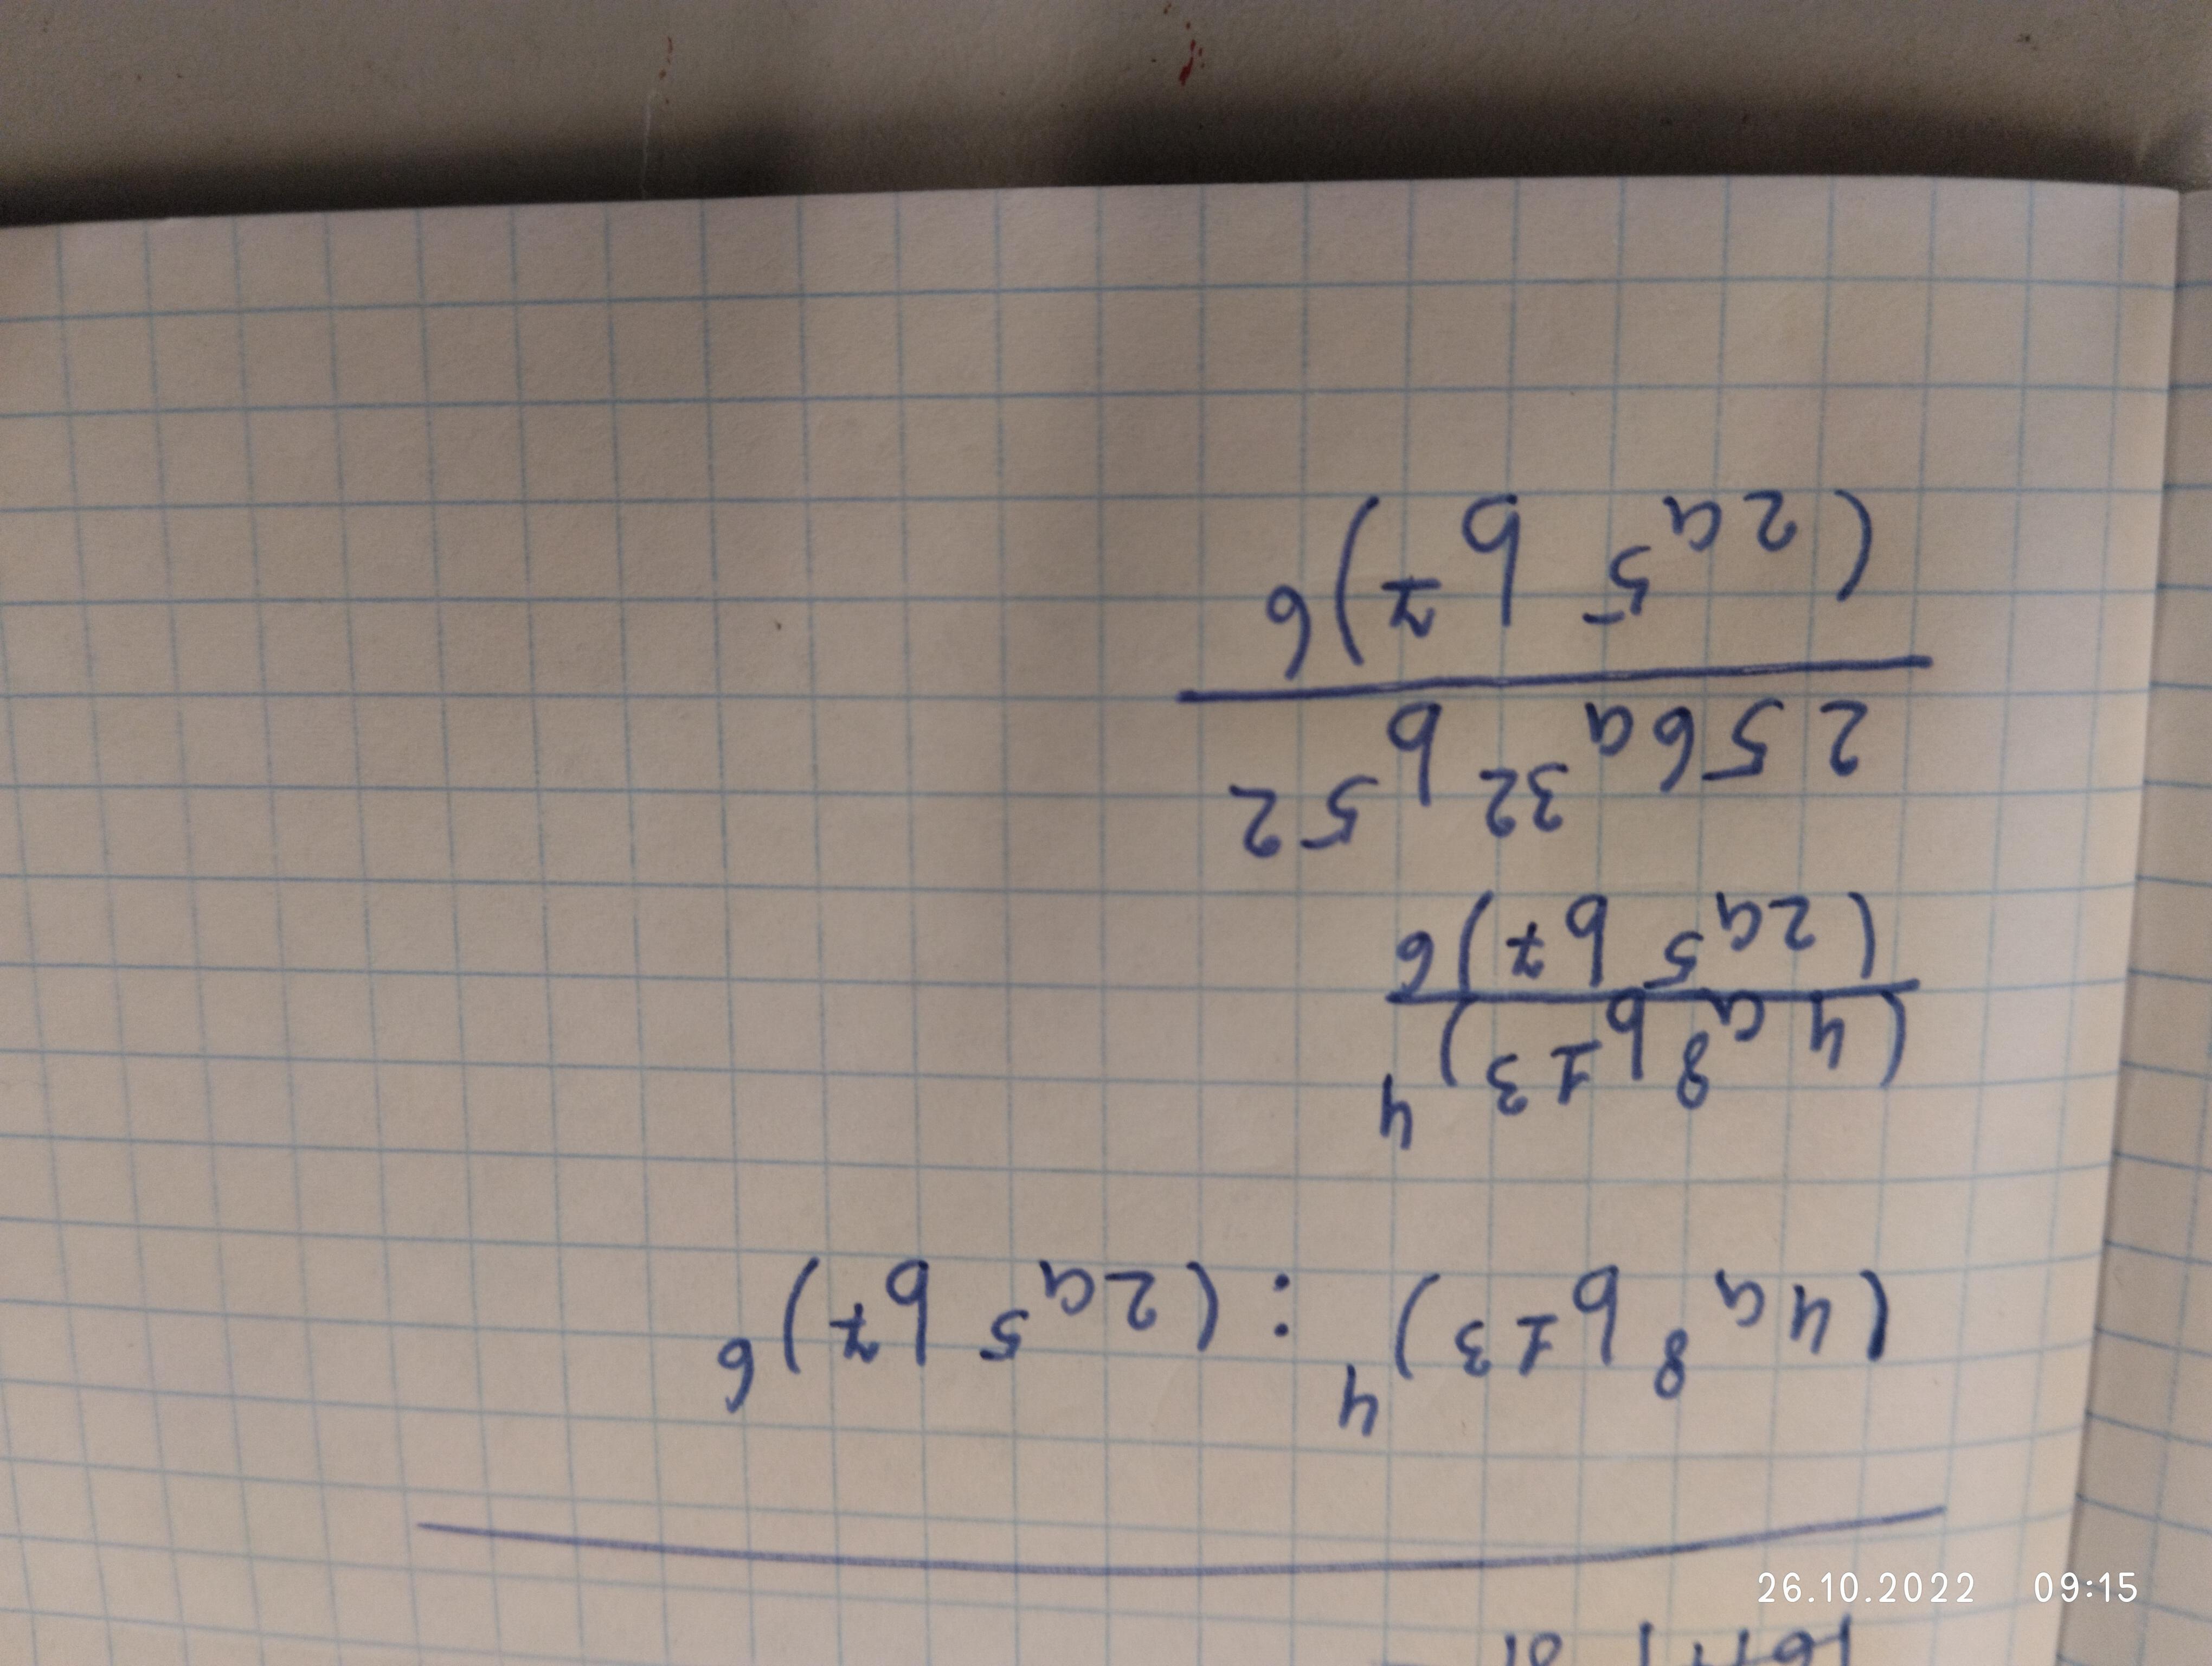 (4a⁸b¹³)⁴ : (2a⁵b⁷)⁶
(4a⁸b¹³)⁴
(2a⁵b⁷)⁶
256a³²b⁵²
(2a⁵b⁷)⁶
26.10.2022 09:15